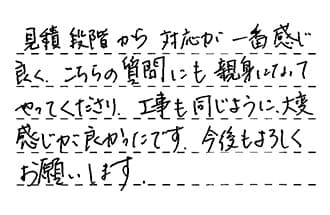 見積段階から対応が一番感じ
良く、こちらの質問にも親身になって
やってくださり、工事も同じように、大変
感じが良かったです。今後もよろしく
お願いします。